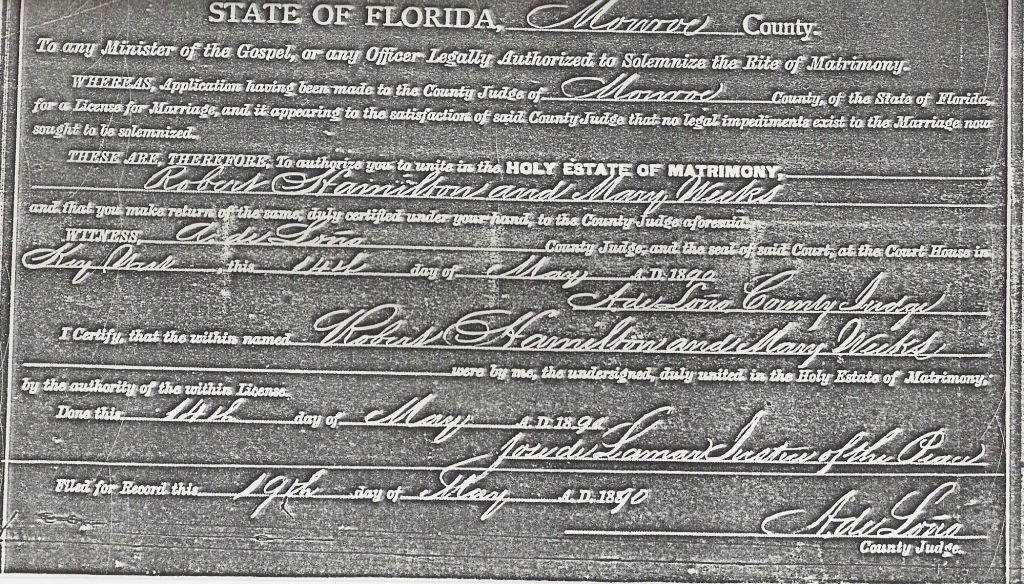 STATE OF FLORIDA, Monroe County.
To any Minister of the Gospel, or any Officer Legally Authorized to Solemnize the Rite of Matrimony.
WHEREAS, Application having been made to the County Judge of Monroe County, of the State of Florida,
for a License for Marriage, and it appearing to the satisfaction of said County Judge that no legal impediments exist to the Marriage now
sought to be solemnized.
THESE ARE, THEREFORE, To authorize you to unite in the HOLY ESTATE OF MATRIMONY,
Robert Hamilton and Mary Weeks
and that you make return of the same, duly certified under your hand, to the County Judge aforesaid.
WITNESS, A de Loño County Judge and the seal of said Court, at the Court House in
Key West, this 14th day of May A. D. 1890
A de Loño County Judge
I Certify, that the within named Robert Hamilton and Mary Weeks
were by me, the undersigned, duly united in the Holy Estate of Matrimony,
by the authority of the within License.
Done this 14th day of May A. D. 1890
de Lamar Justice of the Peace
Filed for Record this 19th day of May A. D. 1890
A de Loño
County Judge.